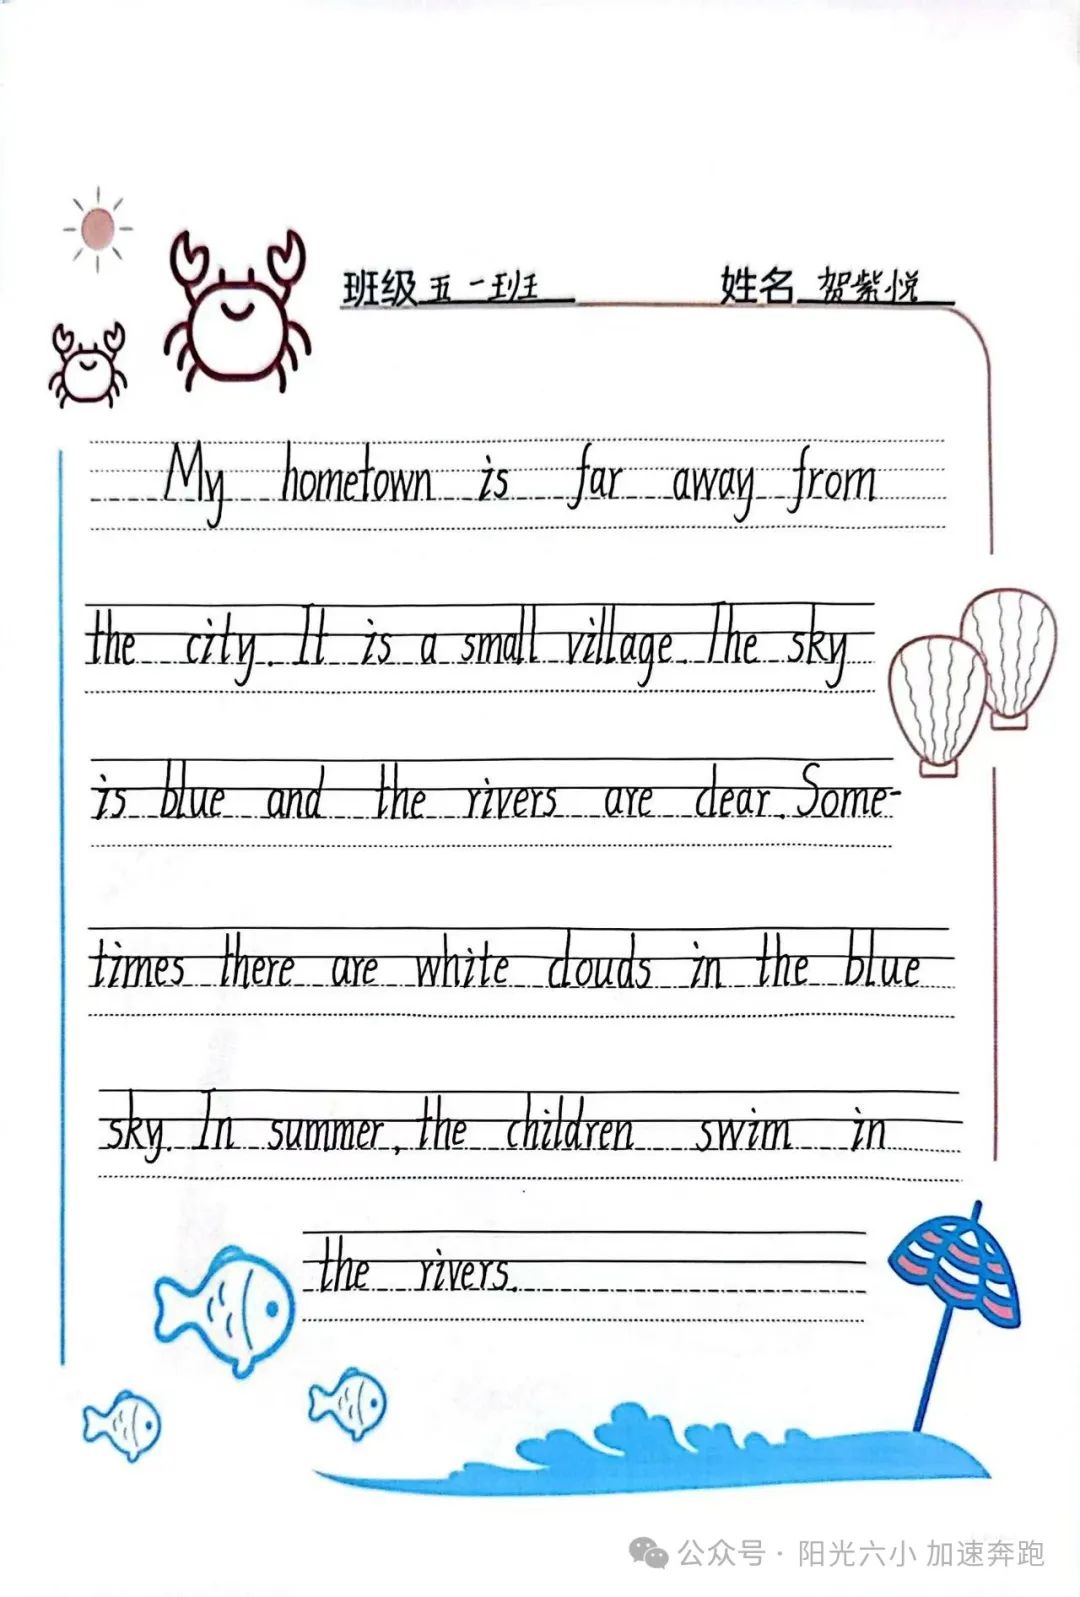 班级 五一班 姓名 贺紫悦
My hometown is far away from
the city. It is a small village. The sky
is blue and the rivers are clear. Some-
times there are white clouds in the blue
sky. In summer, the children swim in
the rivers.
公众号 · 阳光六小 加速奔跑